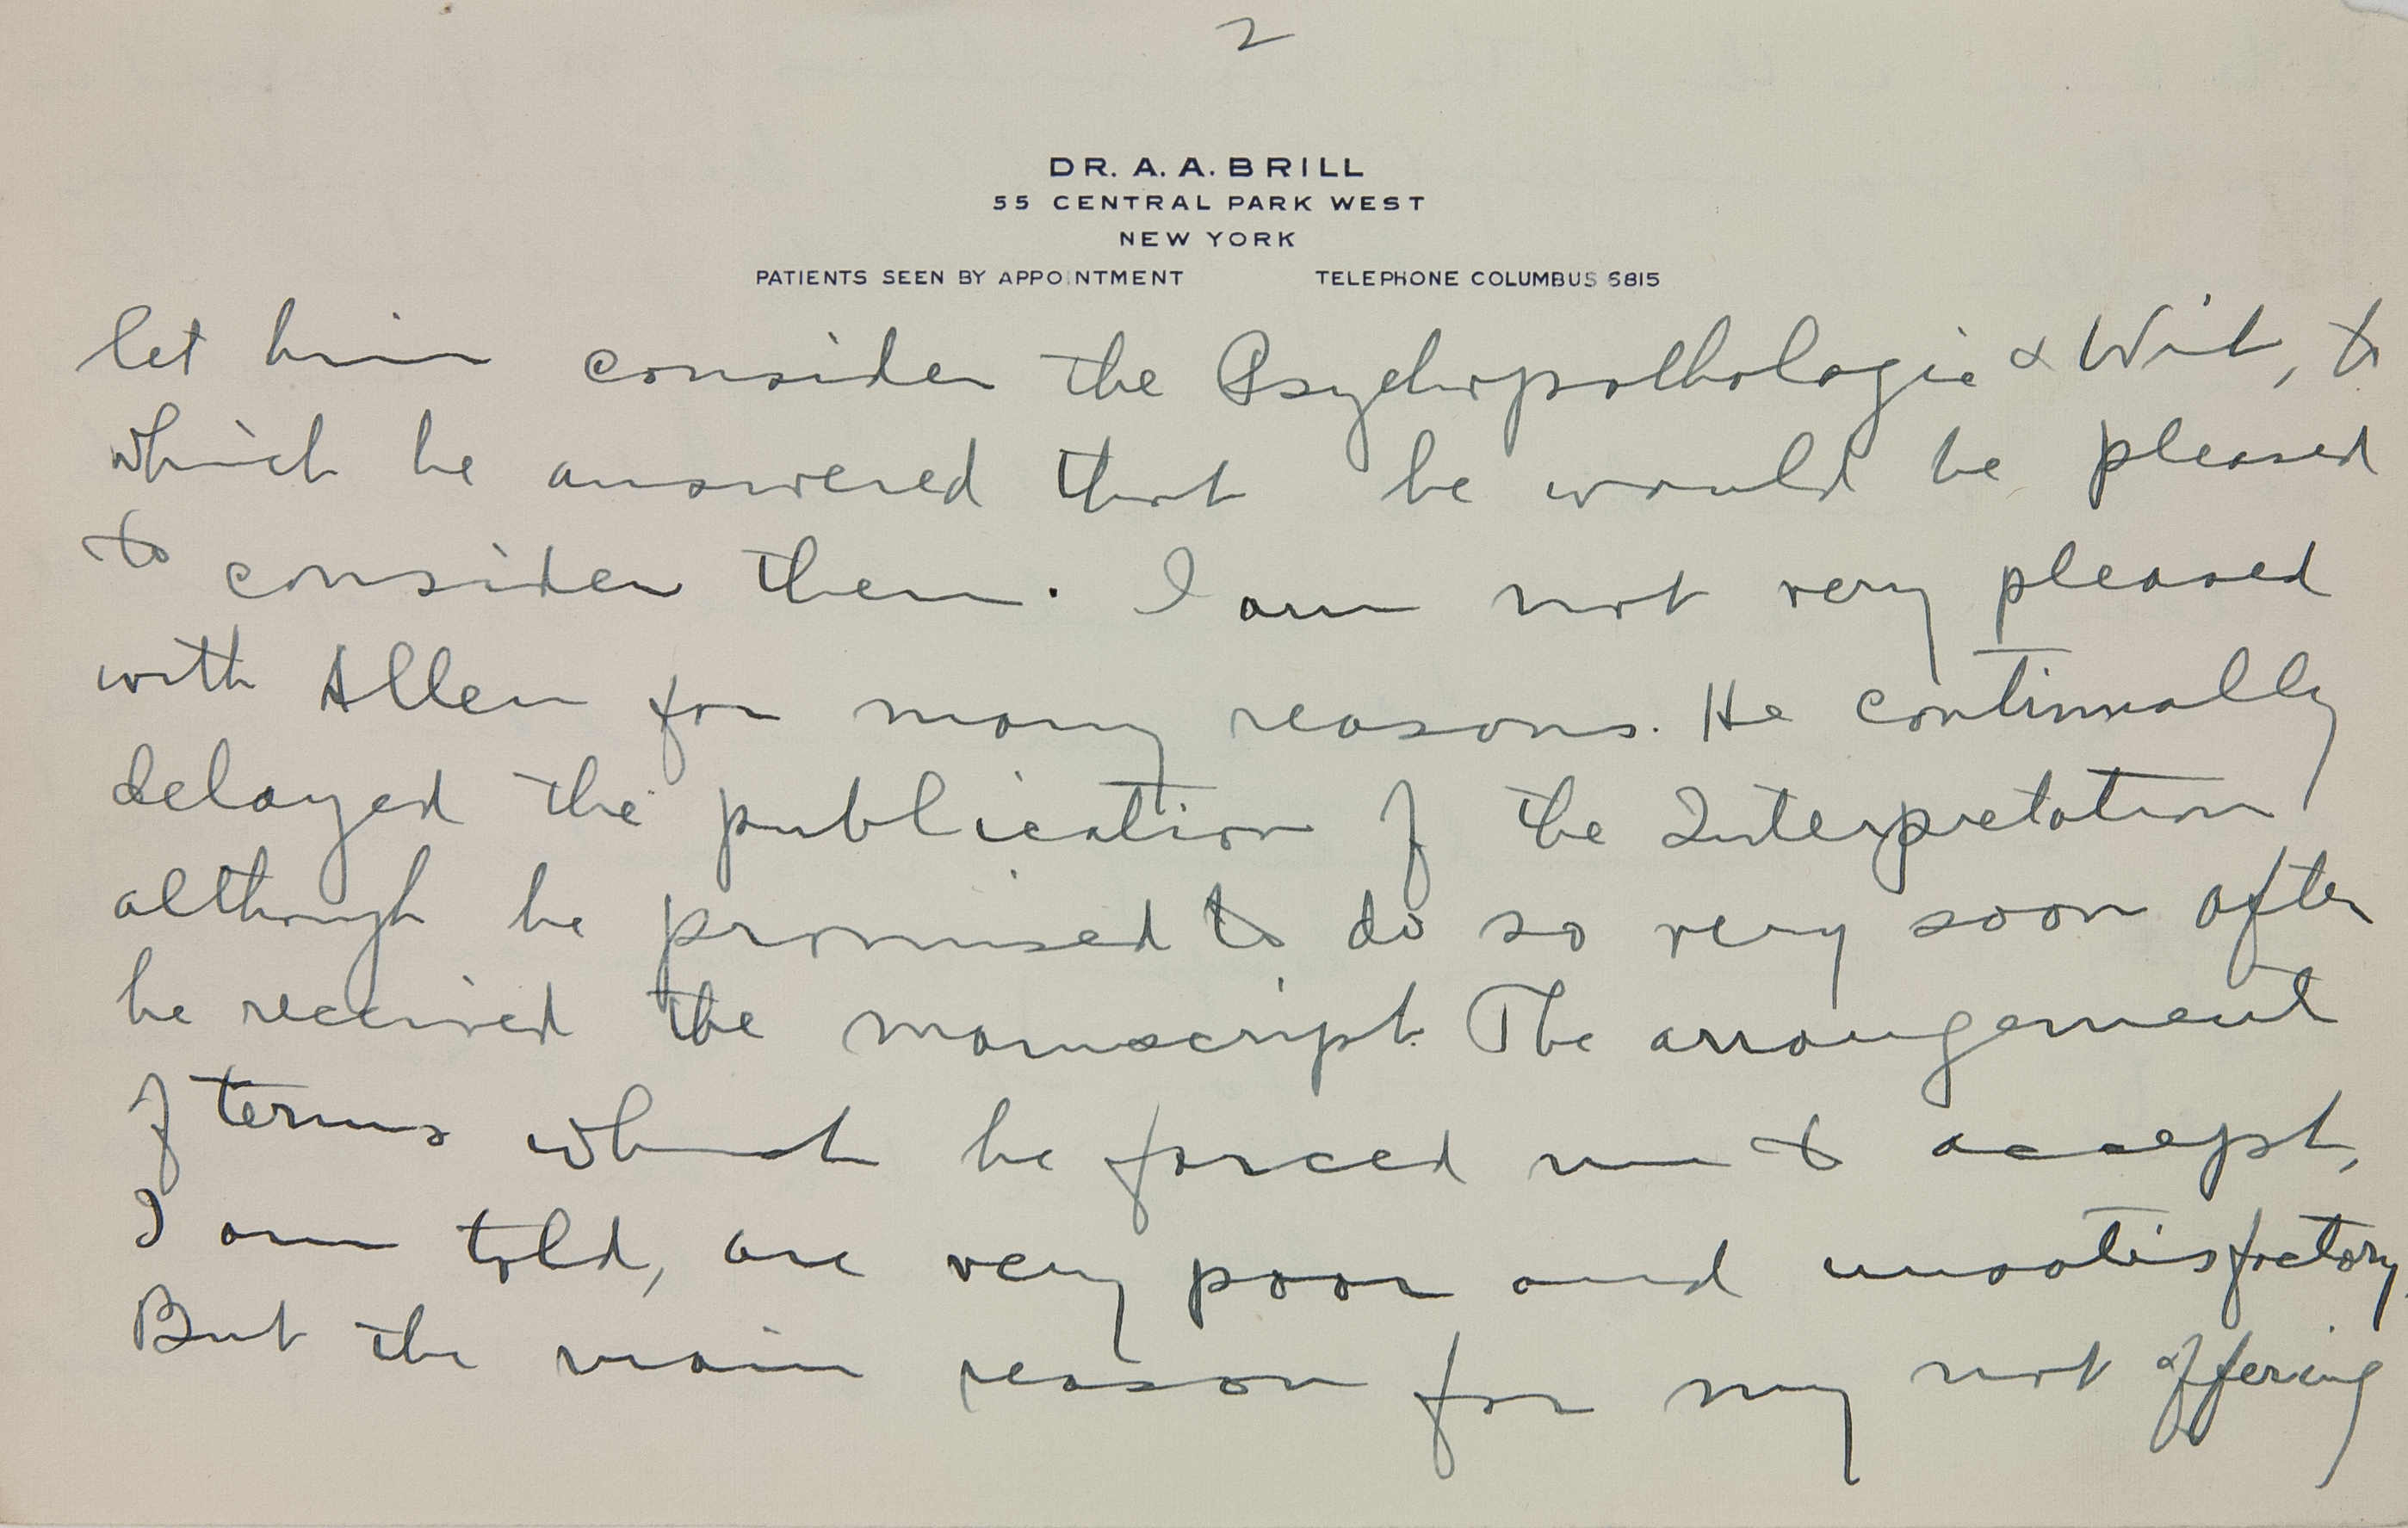 2
DR. A. A. BRILL
55 CENTRAL PARK WEST
NEW YORK
PATIENTS SEEN BY APPOINTMENT TELEPHONE COLUMBUS 6815
let him consider the Psychopathologie & Wit, to
which he answered that he would be pleased
to consider them. I am not very pleased
with Allen for many reasons. He continually
delayed the publication of the Interpretation
although he promised to do so very soon after
he received the manuscript. The arrangement
of terms which he forced me to accept,
I am told, are very poor and unsatisfactory.
But the main reason for my not offering